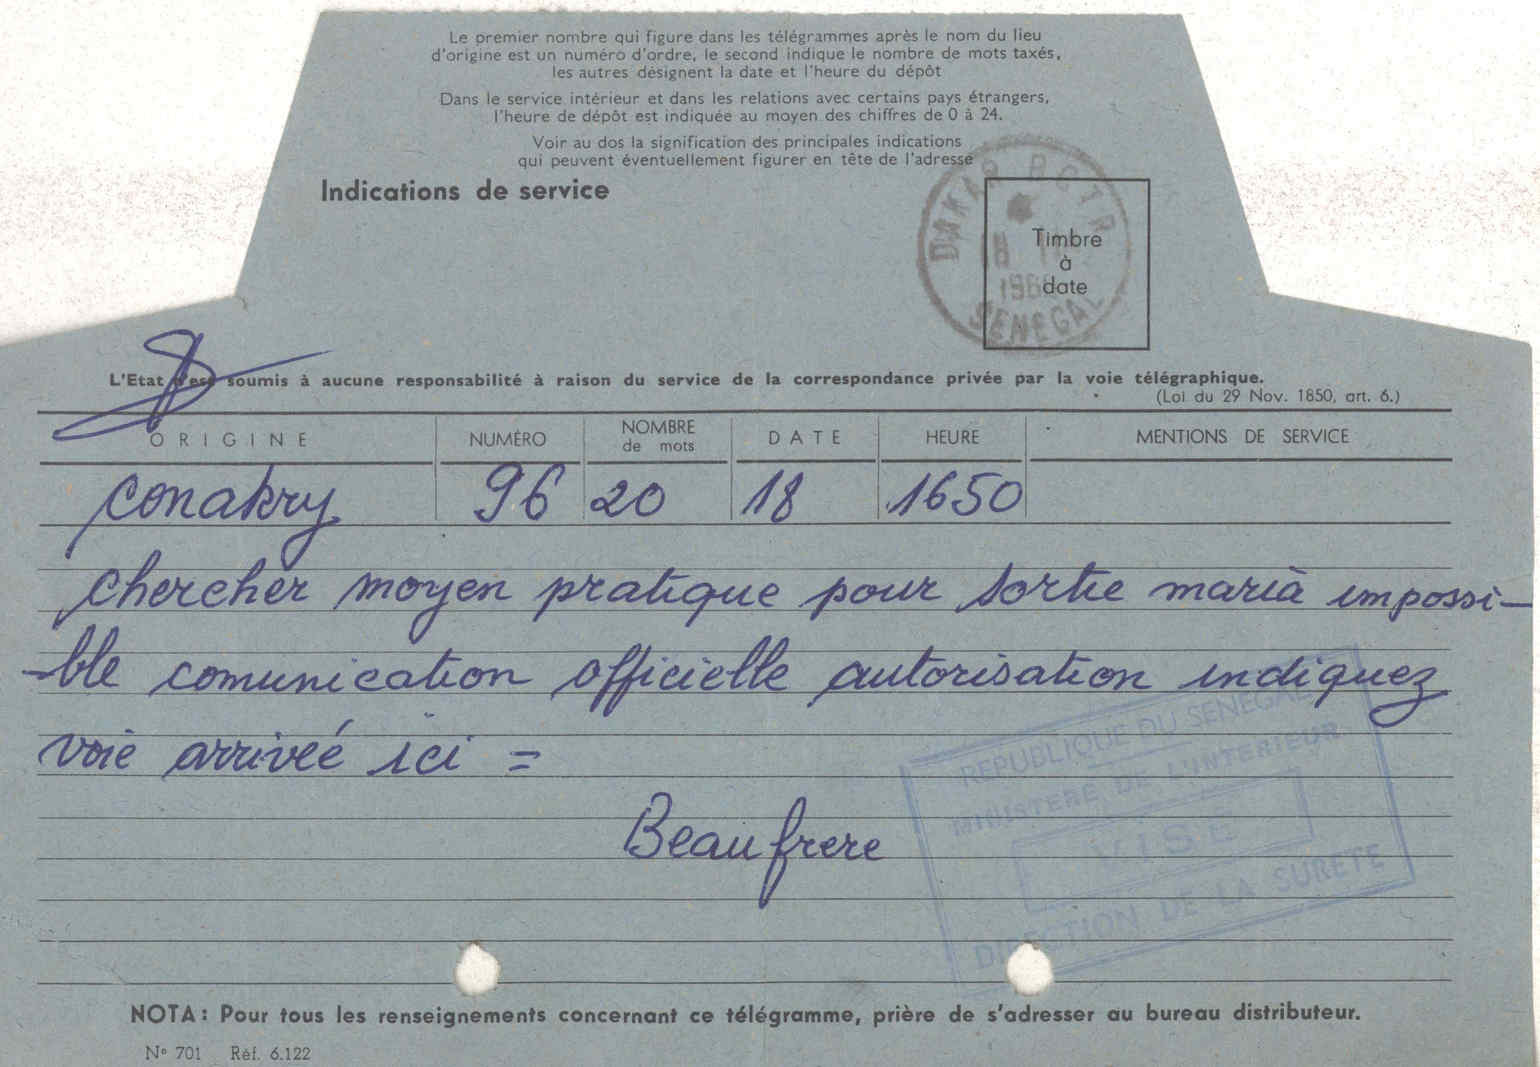 Le premier nombre qui figure dans les télégrammes après le nom du lieu
d'origine est un numéro d'ordre, le second indique le nombre de mots taxés,
les autres désignent la date et l'heure du dépôt
Dans le service intérieur et dans les relations avec certains pays étrangers,
l'heure de dépôt est indiquée au moyen des chiffres de 0 à 24.
Voir au dos la signification des principales indications
qui peuvent éventuellement figurer en tête de l'adresse
Indications de service
DAKAR BCTR
18
SENEGAL
Timbre
à
date
L'Etat n'est soumis à aucune responsabilité à raison du service de la correspondance privée par la voie télégraphique.
(Loi du 29 Nov. 1850, art. 6.)
ORIGINE NUMÉRO NOMBRE de mots DATE HEURE MENTIONS DE SERVICE
Conakry 96 20 18 1650
chercher moyen pratique pour sortie maria impossi-
-ble comunication officielle autorisation indiquez
voie arrivée ici =
Beaufrere
REPUBLIQUE DU SENEGAL
MINISTERE DE L'INTERIEUR
VISE
DIRECTION DE LA SURETE
NOTA : Pour tous les renseignements concernant ce télégramme, prière de s'adresser au bureau distributeur.
N° 701 Réf. 6.122